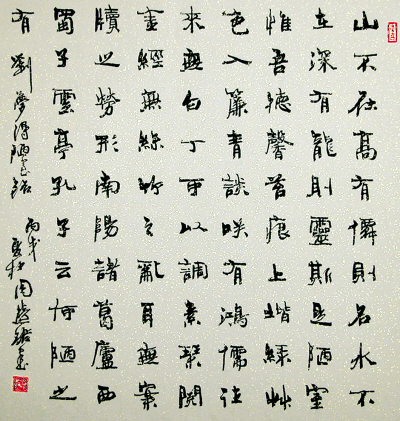 山不在高有僊則名水不
在深有龍則靈斯是陋室
惟吾德馨苔痕上堦綠艸
色入簾青談咲有鴻儒往
來無白丁可以調素琴閱
金經無絲竹之亂耳無案
牘之勞形南陽諸葛廬西
蜀子雲亭孔子云何陋之
有
劉夢得陋室銘
丙戌